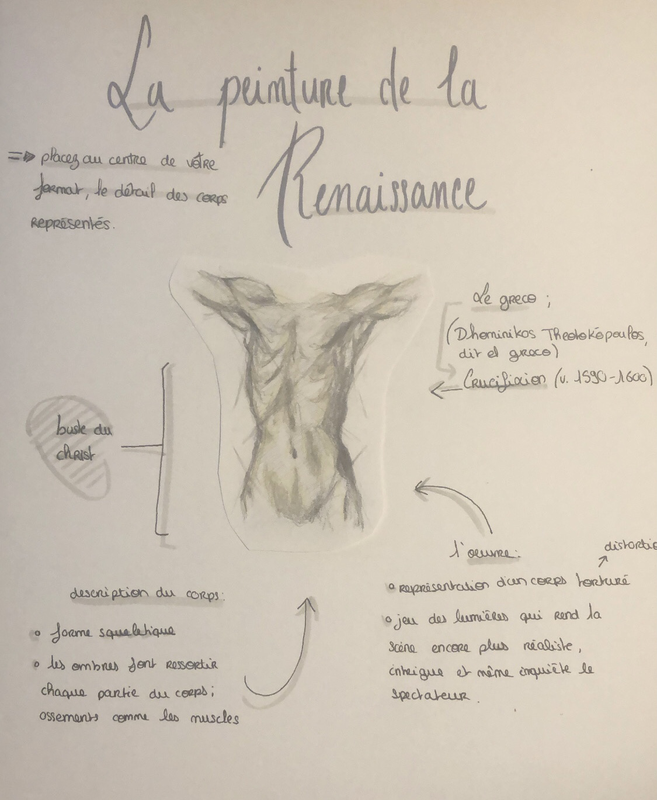 La peinture de la
Renaissance
=> placez au centre de votre
format, le détail des corps
représentés.
Le greco ;
(Dhominikos Theotokópoulos,
dit el greco)
Crucifixion (v. 1590-1600)
buste du
christ
l'œuvre:
distortio
• représentation d'un corps torturé
• jeu des lumières qui rend la
scène encore plus réaliste,
intrigue et même inquiète le
spectateur.
description du corps:
• forme squeletique
• les ombres font ressortir
chaque partie du corps;
ossements comme les muscles